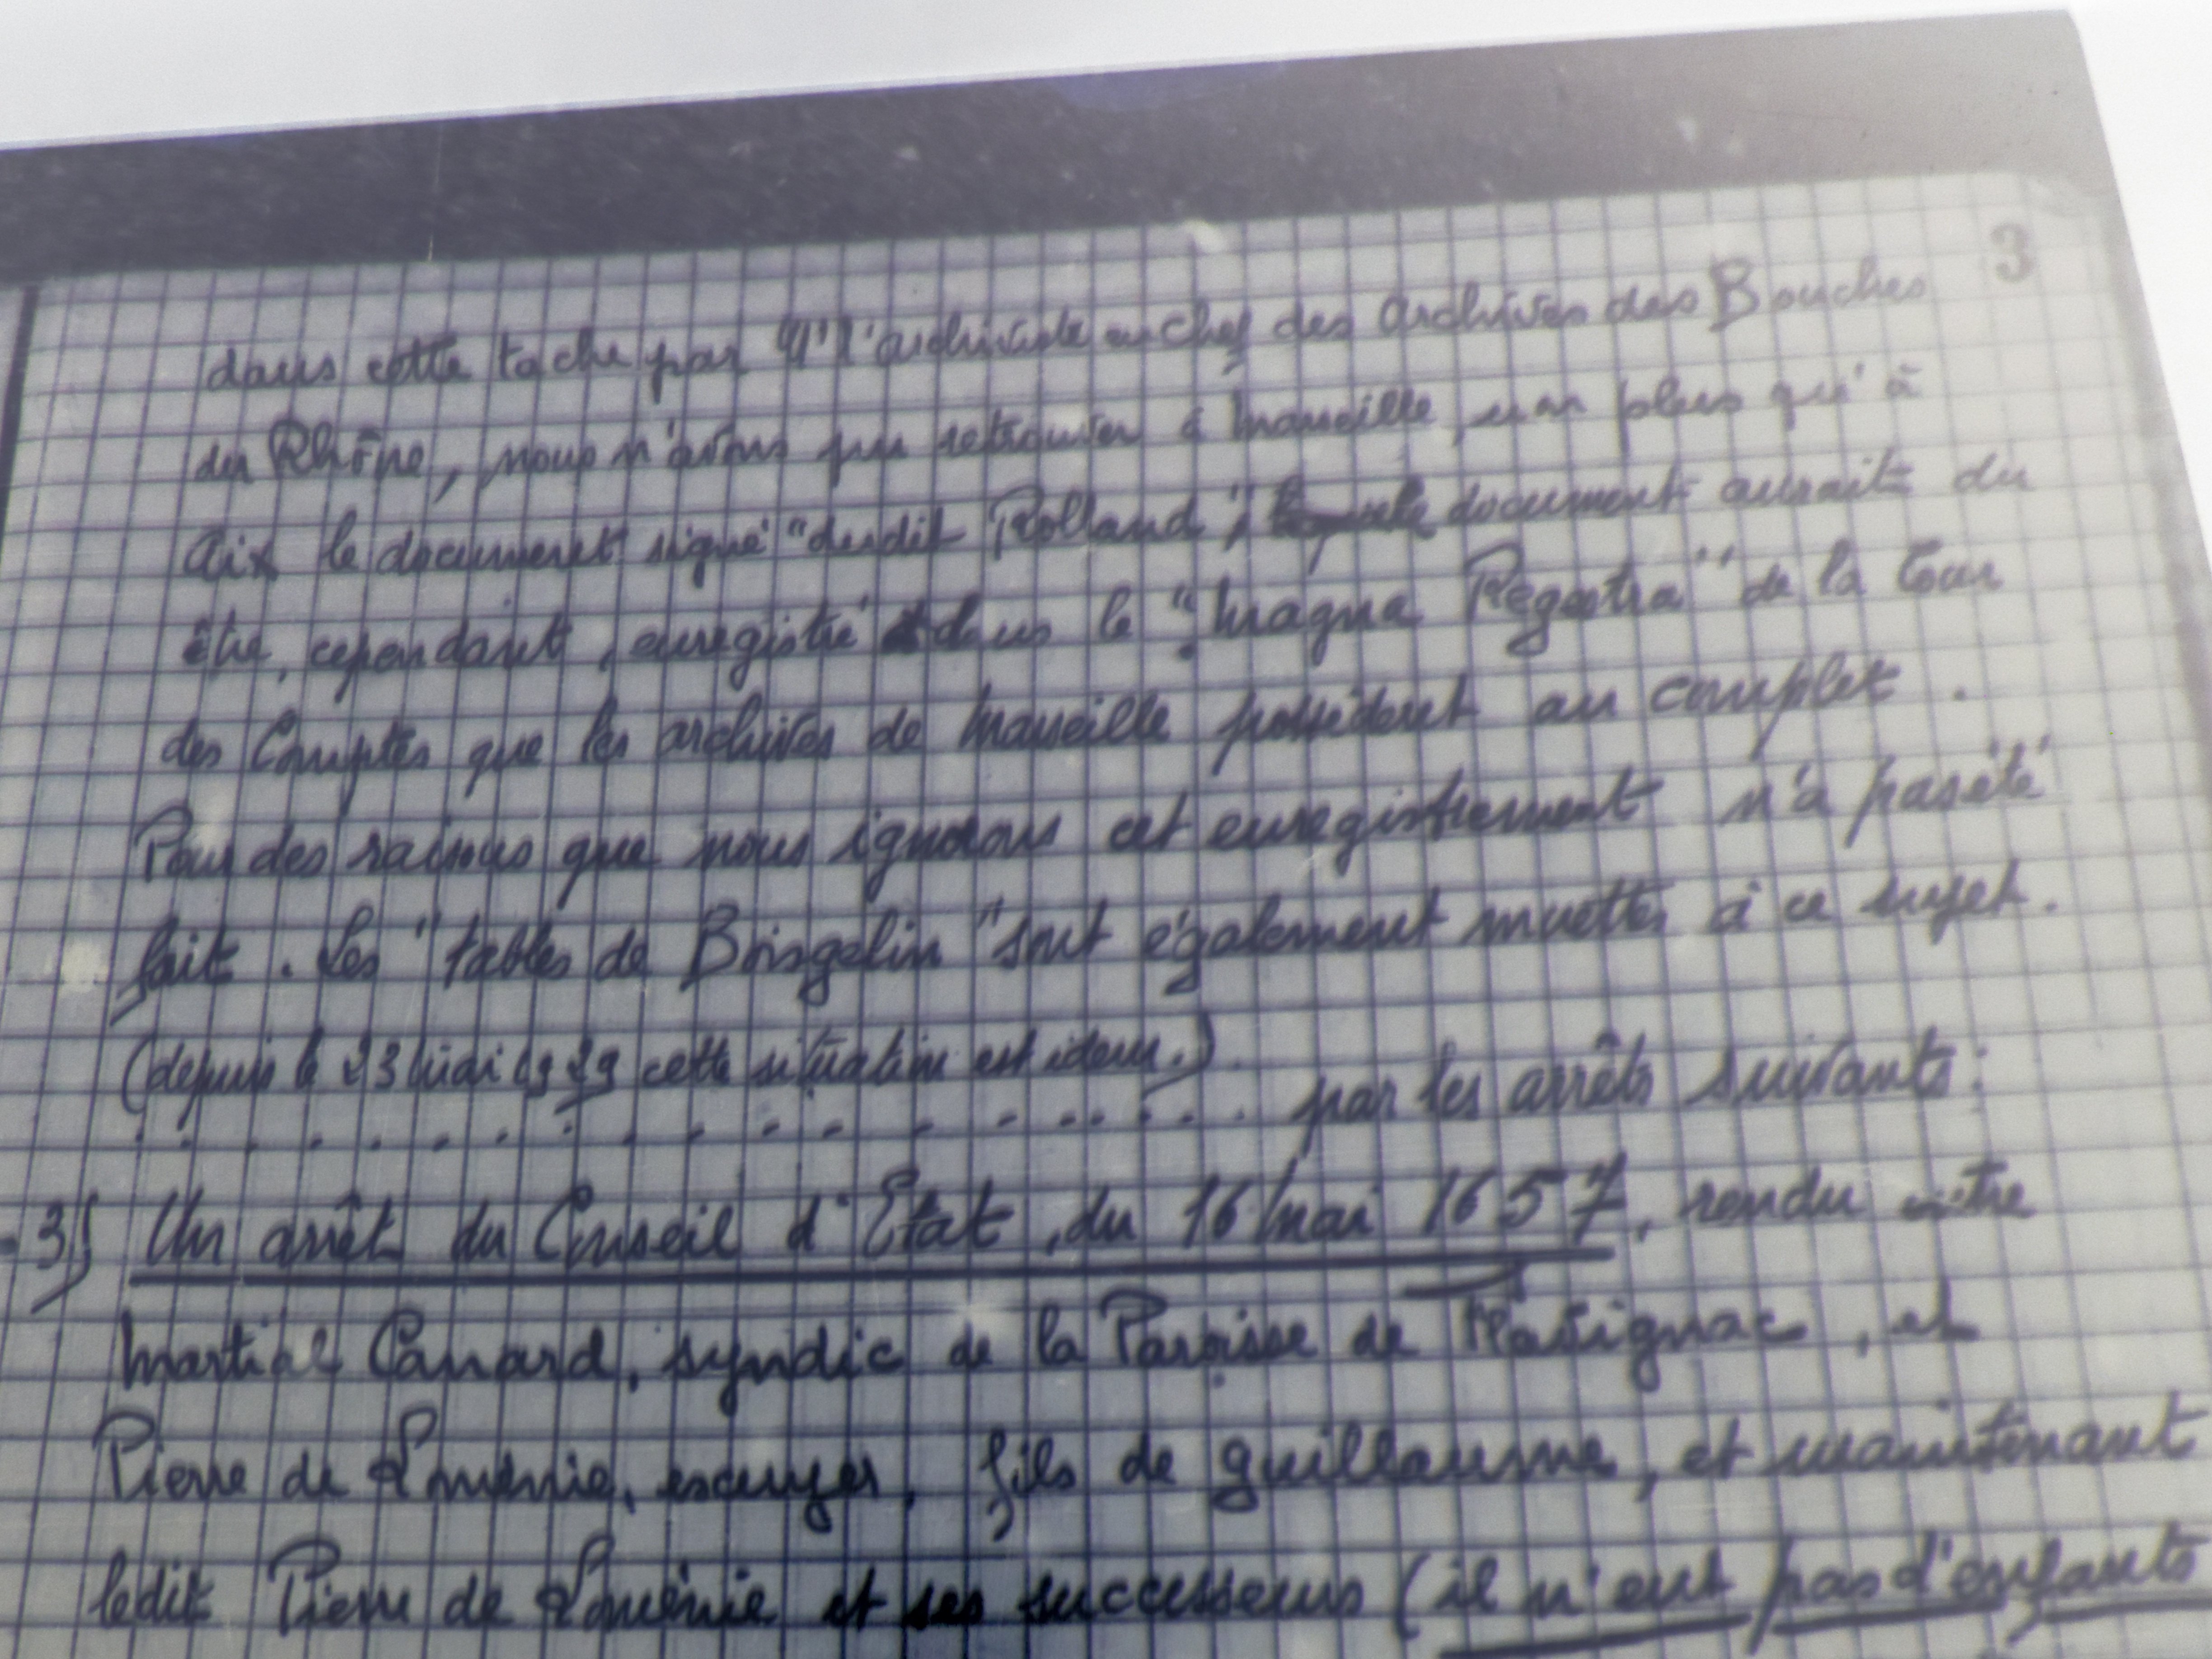 3
dans cette tache par Mr l'archiviste en chef des Archives des Bouches
du Rhône, nous n'avons pu retrouver à Marseille, non plus qu'à
Aix le document signé "dudit Rolland", document aurait du
être, cependant, enregistré dans le "Magna Regestra" de la Cour
des Comptes que les archives de Marseille possèdent au complet.
Pour des raisons que nous ignorons cet enregistrement n'a pas été
fait. Les "tables de Boisgelin" sont également muettes à ce sujet.
(depuis le 23 Mai 1929 cette situation est idem.)
. . . . . . . . . . . . . . . . . par les arrêts suivants:
- 3) Un arrêt du Conseil d'Etat, du 16 Mai 1657, rendu entre
Martial Canard, syndic de la Paroisse de Flavignac, et
Pierre de Loménie, escuyer, fils de Guillaume, et maintenant
ledit Pierre de Loménie et ses successeurs (il n'eut pas d'enfants